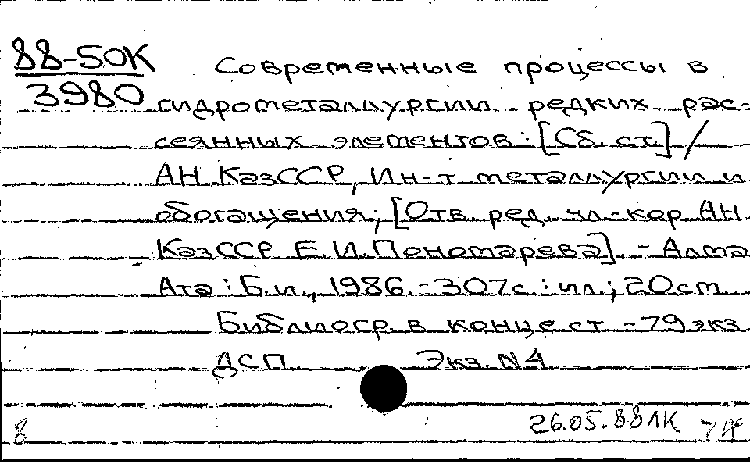 88-50К Современные процессы в
3980 гидрометаллургии редких рас-
сеянных элементов: [Сб. ст.] /
АН КазССР, Ин-т металлургии и
обогащения; [Отв. ред. чл.-кор. АН
КазССР Е.И. Пономарева]. - Алма
Ата: Б.и., 1986. - 307с.: ил.; 20см
Библиогр. в конце ст. - 79 экз
ДСП Экз. N4
8 26.05.88 ЛК